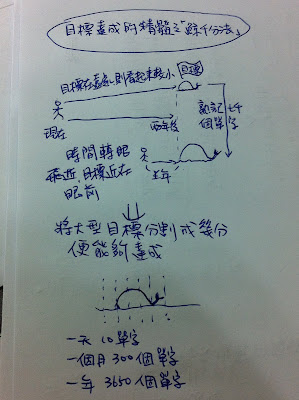 目標達成的精髓之「除千分法」
目標
目標在遠處,則看起來較小
熟記七千
個單字
現在
兩年後
時間轉眼
飛逝,目標近在
眼前
將大型目標分割成幾分
便能夠達成
一天 10 單字
一個月 300 個單字
一年 3650 個單字